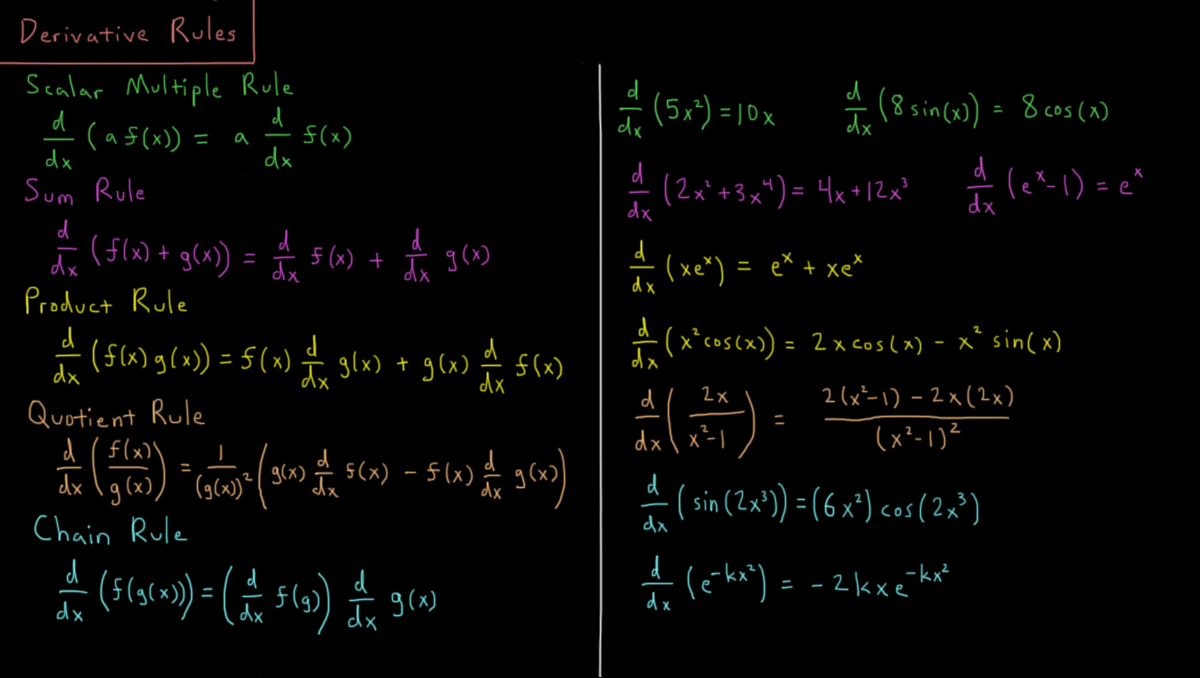 Derivative Rules
Scalar Multiple Rule
d/dx (a f(x)) = a d/dx f(x)
Sum Rule
d/dx (f(x) + g(x)) = d/dx f(x) + d/dx g(x)
Product Rule
d/dx (f(x) g(x)) = f(x) d/dx g(x) + g(x) d/dx f(x)
Quotient Rule
d/dx (f(x)/g(x)) = 1/(g(x))² (g(x) d/dx f(x) - f(x) d/dx g(x))
Chain Rule
d/dx (f(g(x))) = (d/dx f(g)) d/dx g(x)
d/dx (5x²) = 10x    d/dx (8 sin(x)) = 8 cos(x)
d/dx (2x² + 3x⁴) = 4x + 12x³    d/dx (eˣ - 1) = eˣ
d/dx (xeˣ) = eˣ + xeˣ
d/dx (x² cos(x)) = 2x cos(x) - x² sin(x)
d/dx (2x/(x²-1)) = (2(x²-1) - 2x(2x))/(x²-1)²
d/dx (sin(2x³)) = (6x²) cos(2x³)
d/dx (e^(-kx²)) = -2kxe^(-kx²)